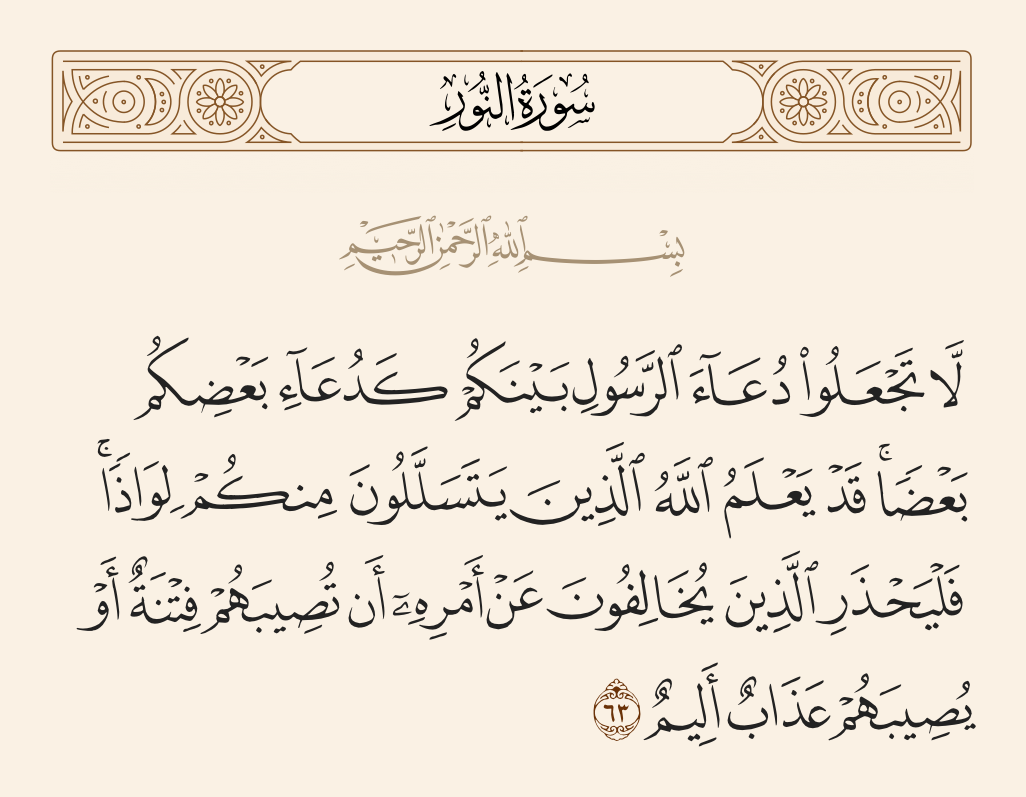 سُورَةُ النُّورِ
بِسْمِ اللَّهِ الرَّحْمَٰنِ الرَّحِيمِ
لَّا تَجْعَلُوا۟ دُعَآءَ ٱلرَّسُولِ بَيْنَكُمْ كَدُعَآءِ بَعْضِكُم
بَعْضًا ۚ قَدْ يَعْلَمُ ٱللَّهُ ٱلَّذِينَ يَتَسَلَّلُونَ مِنكُمْ لِوَاذًا ۚ
فَلْيَحْذَرِ ٱلَّذِينَ يُخَالِفُونَ عَنْ أَمْرِهِۦٓ أَن تُصِيبَهُمْ فِتْنَةٌ أَوْ
يُصِيبَهُمْ عَذَابٌ أَلِيمٌ ٦٣